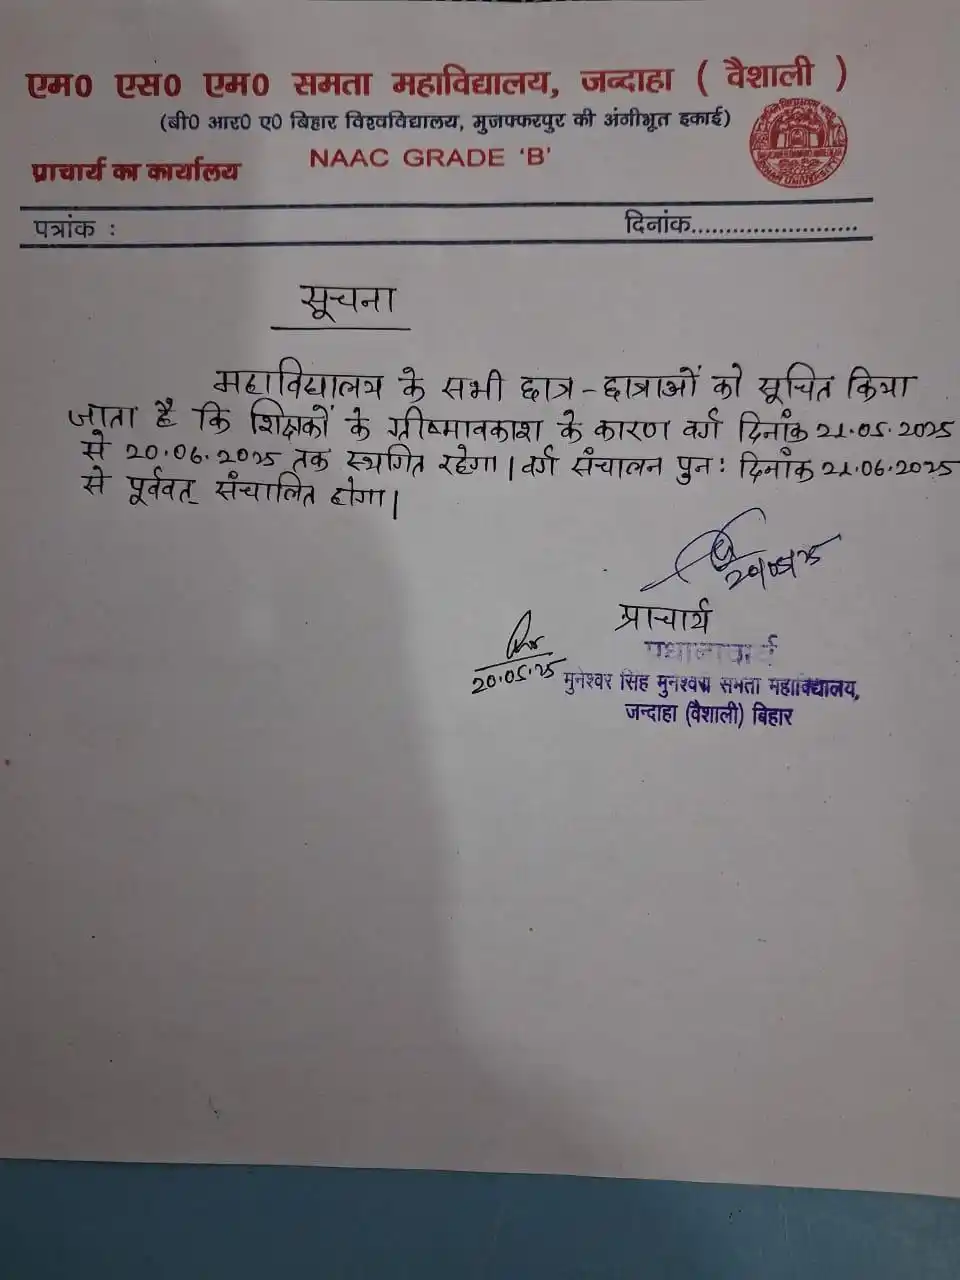 एम0 एस0 एम0 समता महाविद्यालय, जन्दाहा ( वैशाली )
(बी0 आर0 ए0 बिहार विश्वविद्यालय, मुजफ्फरपुर की अंगीभूत इकाई)
NAAC GRADE 'B'
प्राचार्य का कार्यालय
पत्रांक :
दिनांक........................
सूचना
महाविद्यालय के सभी छात्र-छात्राओं को सूचित किया
जाता है कि शिक्षकों के ग्रीष्मावकाश के कारण वर्ग दिनांक 21.05.2025
से 20.06.2025 तक स्थगित रहेगा। वर्ग संचालन पुनः दिनांक 21.06.2025
से पूर्ववत् संचालित होगा।
20/05/25
प्राचार्य
20.05.25
प्रधानाचार्य
मुनेश्वर सिंह मुनेश्वरी समता महाविद्यालय,
जन्दाहा (वैशाली) बिहार